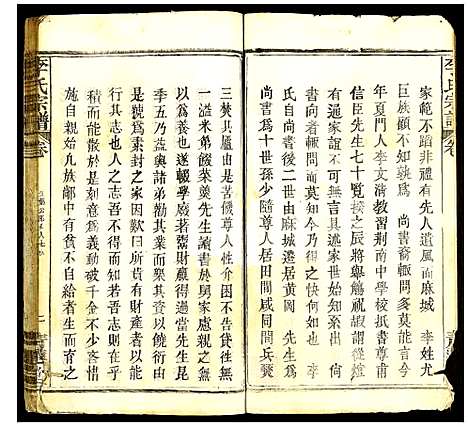 家範不蹈非禮有先人遺風而麻城 李姓尤
巨族顧不知孰爲 尚書裔輒問多莫能言今
年夏門人李文濤教習荆南中學校抵書尊甫
信臣先生七十覽揆之辰將舉觴祝嘏謂綏
有通家誼不可無言具述家世始知其
自尚書者輒問而莫知今乃得之快何如也 李
氏自尚書後二世由麻城遷居黃岡 先生爲
尚書十世孫少隨尊人居田間咸同間兵燹
三焚其廬由是苦儉尊人性介不因不告貸往往
一溢米弟餒菜羹先生讀書於舅家慮親之無
以爲養也遂輟學廢著鬻財贏得過當先生昆
季五乃益與諸弟勤其業而槩其食以饒衍由
是號爲素封之家時目所肯有財產者以能
行其志也人之志吾不得而知若吾志則得
積而能散於是刻意爲義動破千金不少客焉
施自親始凡族鄰中有貧不自給者生而育之
李氏宗譜
卷